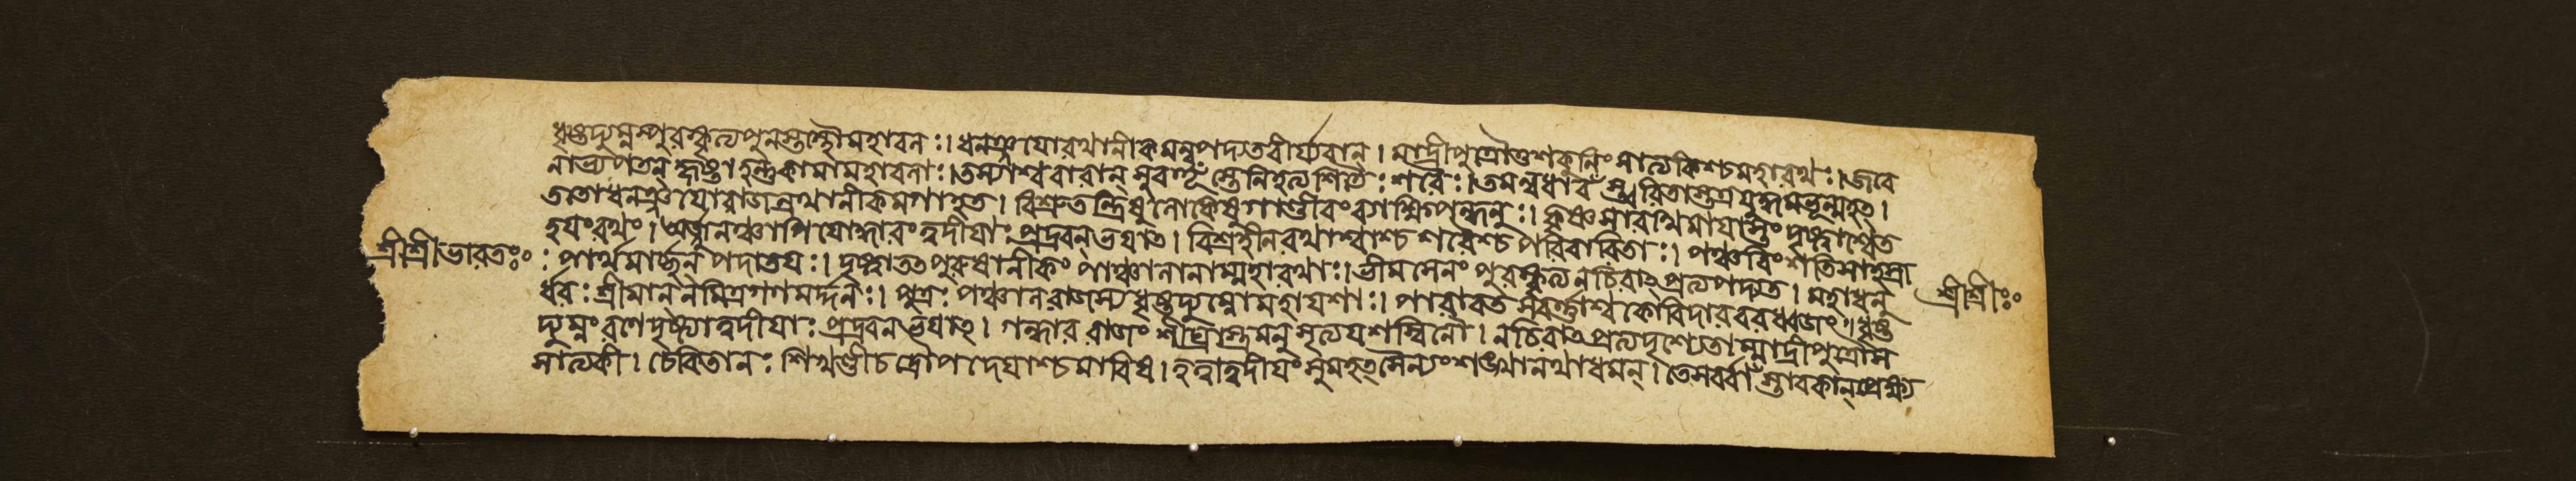 ধৃষ্টদ্যুম্নম্পুরস্কৃত্যপুনস্তস্থৌমহাবল:। ধনঞ্জযোরথানীকমন্বপদ্যতবীর্য্যবান্। মাদ্রীপুত্রৌতুশকুনিং সাত্যকিশ্চমহারথ:। জবে
নাভ্যপতন্ হৃষ্টা হন্তুকামামহাবলা:। তস্যাশ্ববারান্ সুবহূঁ স্তেনিহত্যশিতৈ: শরৈ:। তমন্বধাবঁ স্ত্বরিতাস্তত্রযুদ্ধমভূন্মহৎ।
ততোধনঞ্জযোরাজন্রথানীকমগাহত। বিশ্রুতন্ত্রিষুলোকেষুগাণ্ডীবংবিক্ষিপন্ধনু:। কৃষ্ণসারথিমাযান্তং দৃষ্ট্বাশ্বেত
হযংরথং। অর্জ্জুনঞ্চাপিযোদ্ধারং ত্বদীযা: প্রদ্রবন্ভযাৎ। বিপ্রহীনরথাশ্বাশ্চ শরৈশ্চ পরিবারিতা:। পঞ্চবিংশতিসাহস্রা
শ্রীশ্রীভারতঃ৹ : পার্থমার্চ্ছন্ পদাতয:। দৃষ্ট্বাতত্পুরুষানীকং পাঞ্চালানাম্মহারথা:। ভীমসেনং পুরস্কৃত্যনচিরাৎ প্রত্যপদ্যত। মহাধনু শ্রীশ্রীঃ৹
র্ধর: শ্রীমানমিত্রগণমর্দ্দন:। পুত্র: পঞ্চালরাজস্য ধৃষ্টদ্যুম্নোমহাযশা:। পারাবত সবর্ণাশ্বকোবিদারবরধ্বজং। ধৃষ্ট
দ্যুম্নং রণেদৃষ্ট্বাত্বদীযা: প্রদ্রবন্ভযাৎ। গন্ধাররাজং শীঘ্রাস্ত্রমনুসৃত্যযশস্বিনৌ। নচিরাৎপ্রত্যদৃশ্যেতাম্মাদ্রীপুত্রৌস
সাত্যকী। চেকিতান: শিখণ্ডীচদ্রৌপদেযাশ্চমারিষ। হত্বাত্বদীযং সুমহৎসৈন্যং শঙ্খানথাধমন্। তেসর্বাঁ স্তাবকান্প্রেক্ষ্য